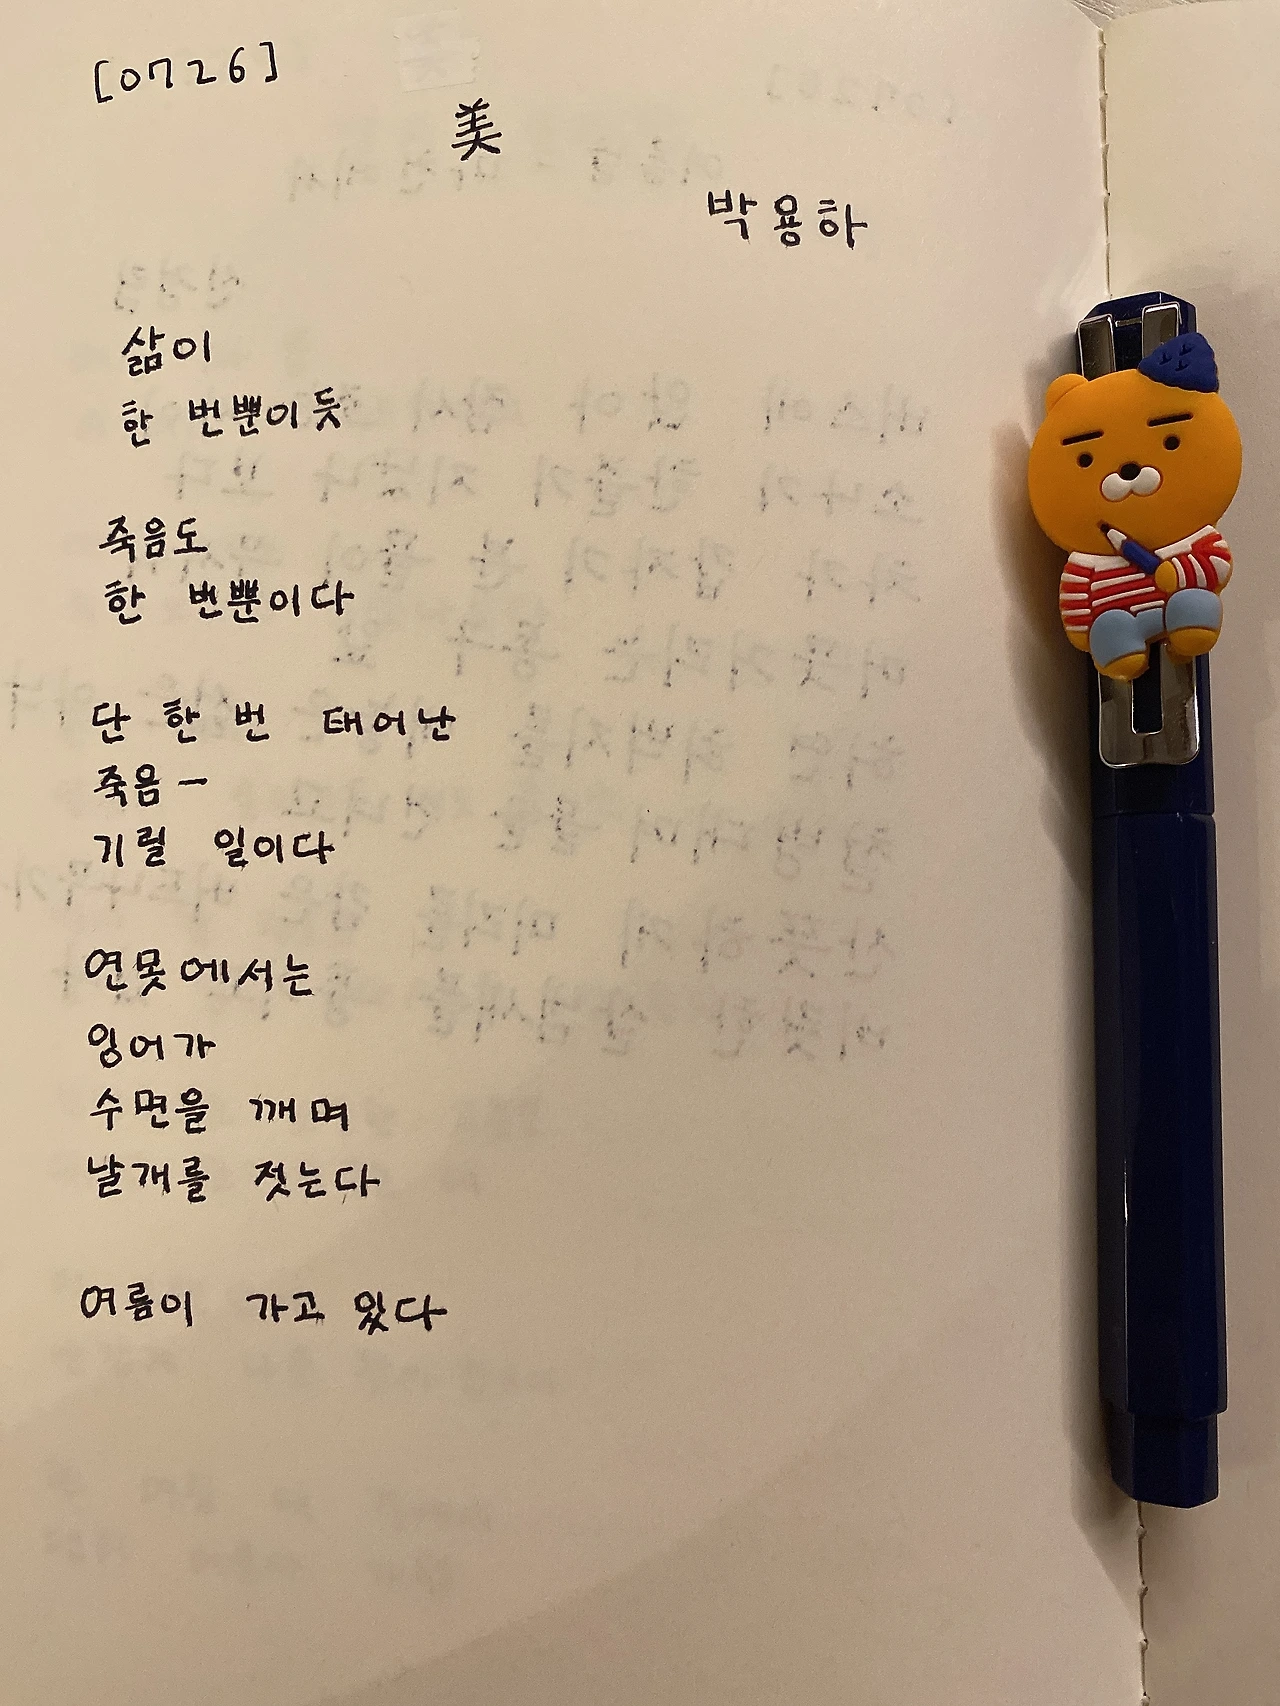 [0726]
美
박용하
삶이
한 번뿐이듯
죽음도
한 번뿐이다
단 한 번 태어난
죽음-
기릴 일이다
연못에서는
잉어가
수면을 깨며
날개를 젓는다
여름이 가고 있다